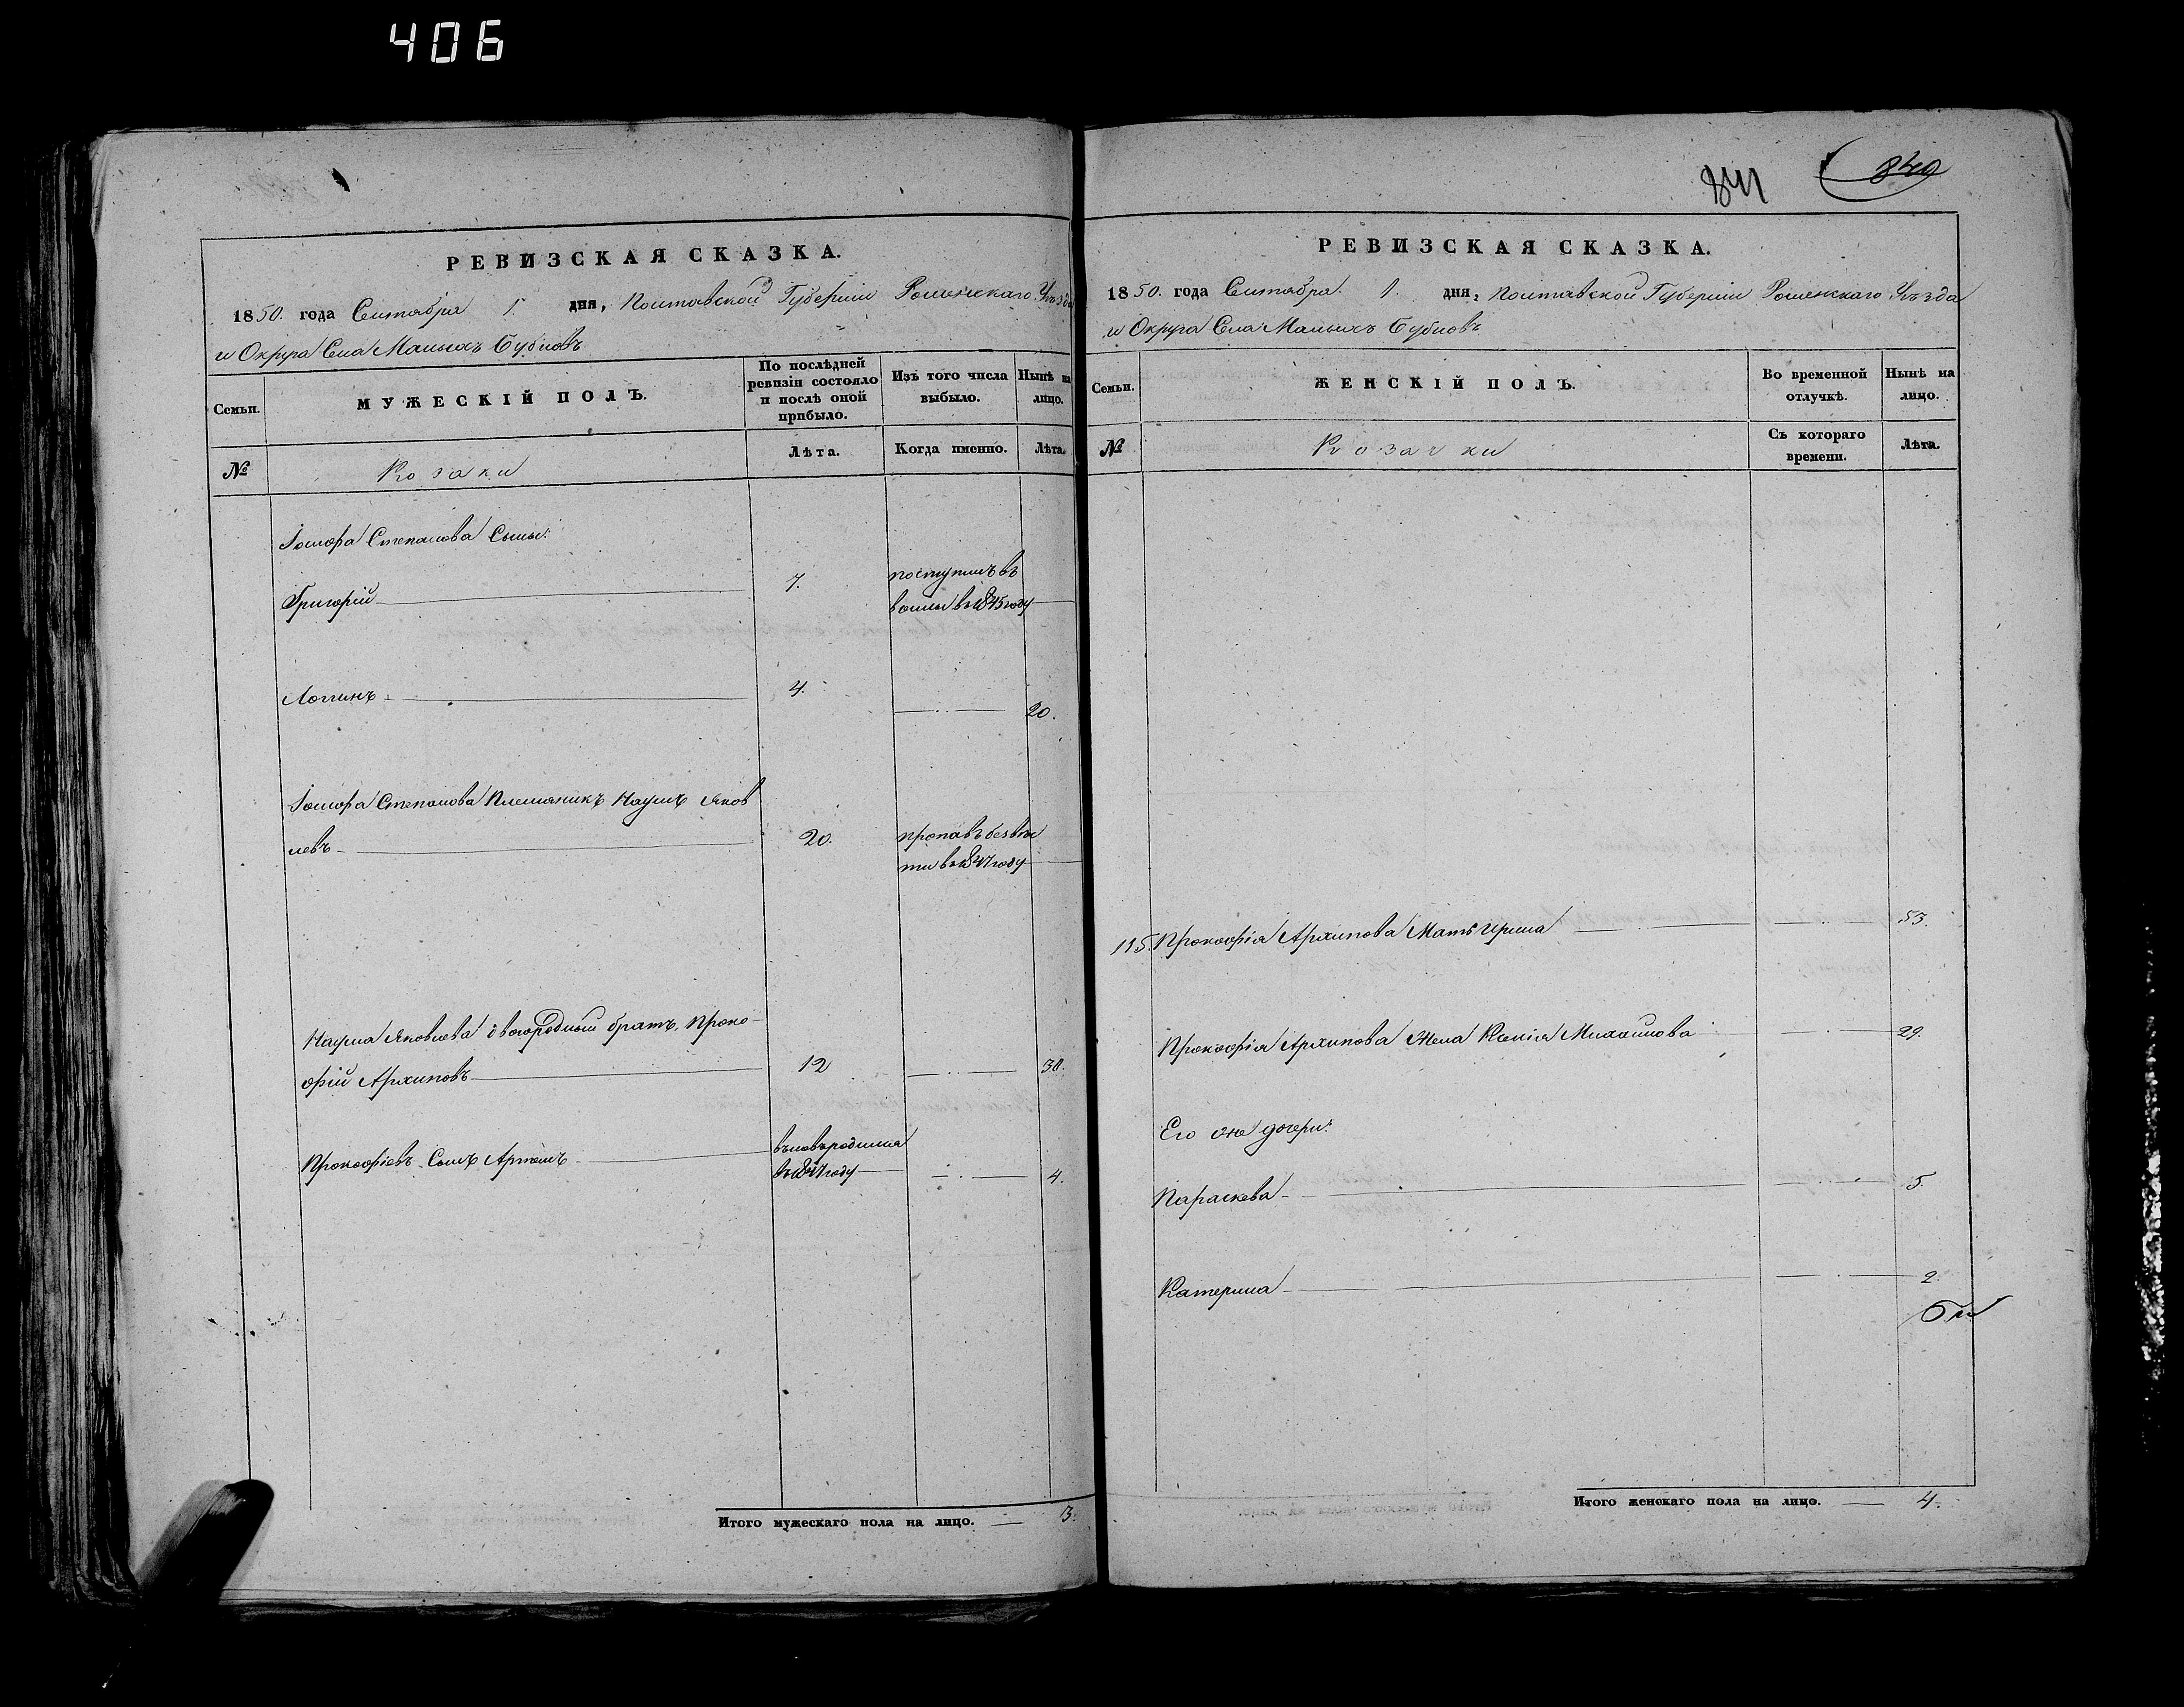 406
РЕВИЗСКАЯ СКАЗКА.
1850. года Сентября 1. дня, Полтавской Губерніи Роменскаго Уѣзда
и Округа Села Малыхъ Бубновъ
Семьи.
МУЖЕСКІЙ ПОЛЪ.
По послѣдней ревизіи состояло и послѣ оной прибыло.
Изъ того числа выбыло.
Нынѣ на лицо.
№
Козаки
Лѣта.
Когда именно.
Лѣта.
Степанова Сыны:
Григорій 7. поступилъ въ
въ 1845 году
Логинъ 4. 20.
Степанова Племяникъ Наумъ Яков
левъ 20. пропавъ безвѣс
ти въ 1847 году
Наума Яковлева двогородный братъ, Проко-
фій Архиповъ 12 30.
Прокофіевъ Сынъ Артемъ вновьродился
въ 1847 году 4.
Итого мужескаго пола на лицо. 3.
841
840
РЕВИЗСКАЯ СКАЗКА.
1850. года Сентября. 1. дня, Полтавской Губерніи Роменскаго Уѣзда
и Округа Села Малыхъ Бубновъ
Семьи.
ЖЕНСКІЙ ПОЛЪ.
Во временной отлучкѣ.
Нынѣ на лицо.
№
Козачки
Съ котораго времени.
Лѣта.
115. Прокофія Архипова Мать Ирина 53.
Прокофія Архипова Жена Ксенія Михайлова 29.
Его же дочери:
Параскева 5.
Катерина 2.
Итого женскаго пола на лицо. 4.